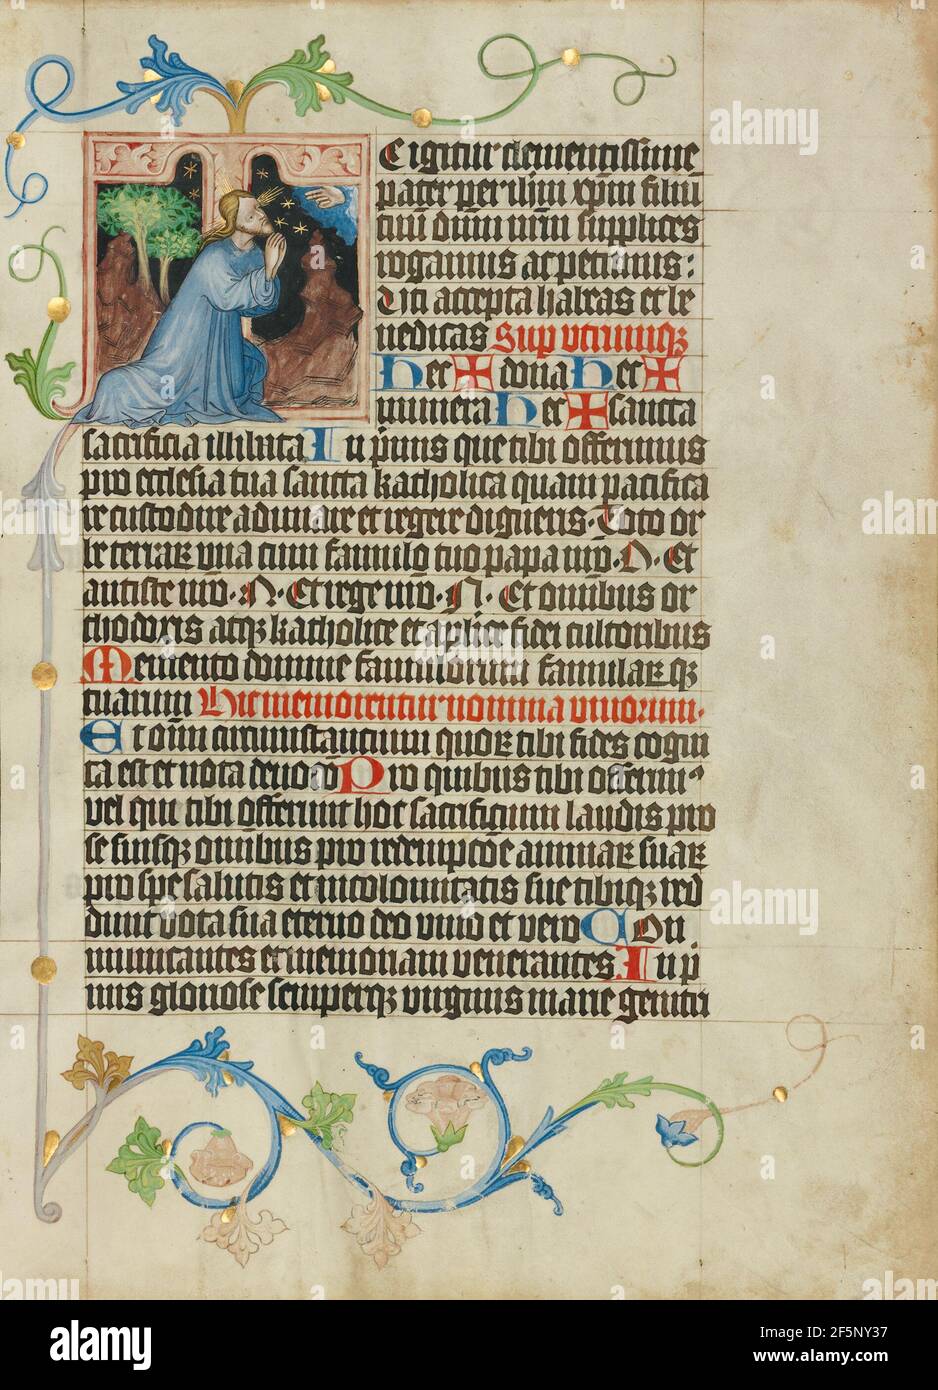 E igitur clementissime
pater per ihm xpm filiu
tuu dnm nrm supplices
rogamus ac petimus:
Uti accepta habeas et be
nedicas Sup utrumqꝫ
Hec ✠ dona Hec ✠
munera Hec ✠ sancta
sacrificia illibata In pmis que tibi offerimus
pro ecclesia tua sancta katholica quam pacifica
re custodire adunare et regere digneris. Toto or
be terraꝝ una cum famulo tuo papa nro. N. Et
antiste nro. N. Et rege nro. N. Et omibus or
thodoxis atqꝫ katholice et aplice fidei cultoribus
Memento domine famulorum famulaꝝ qꝫ
tuarum Hic memorentur nomina vivorum.
Et omi circumstancium quoꝝ tibi fides cogni
ta est et nota devocio Pro quibus tibi offerim9
vel qui tibi offerunt hoc sacrificium laudis pro
se suisqꝫ omnibus pro redempcoe animaꝝ suaꝝ
pro spe salutis et incolomitatis sue tibiqꝫ red
dunt vota sua eterno deo vivo et vero Con
municantes et memoriam venerantes. In p
mis gloriose semperqꝫ virginis marie genitri
alamy
alamy
Image ID: 2F5NY37
www.alamy.com